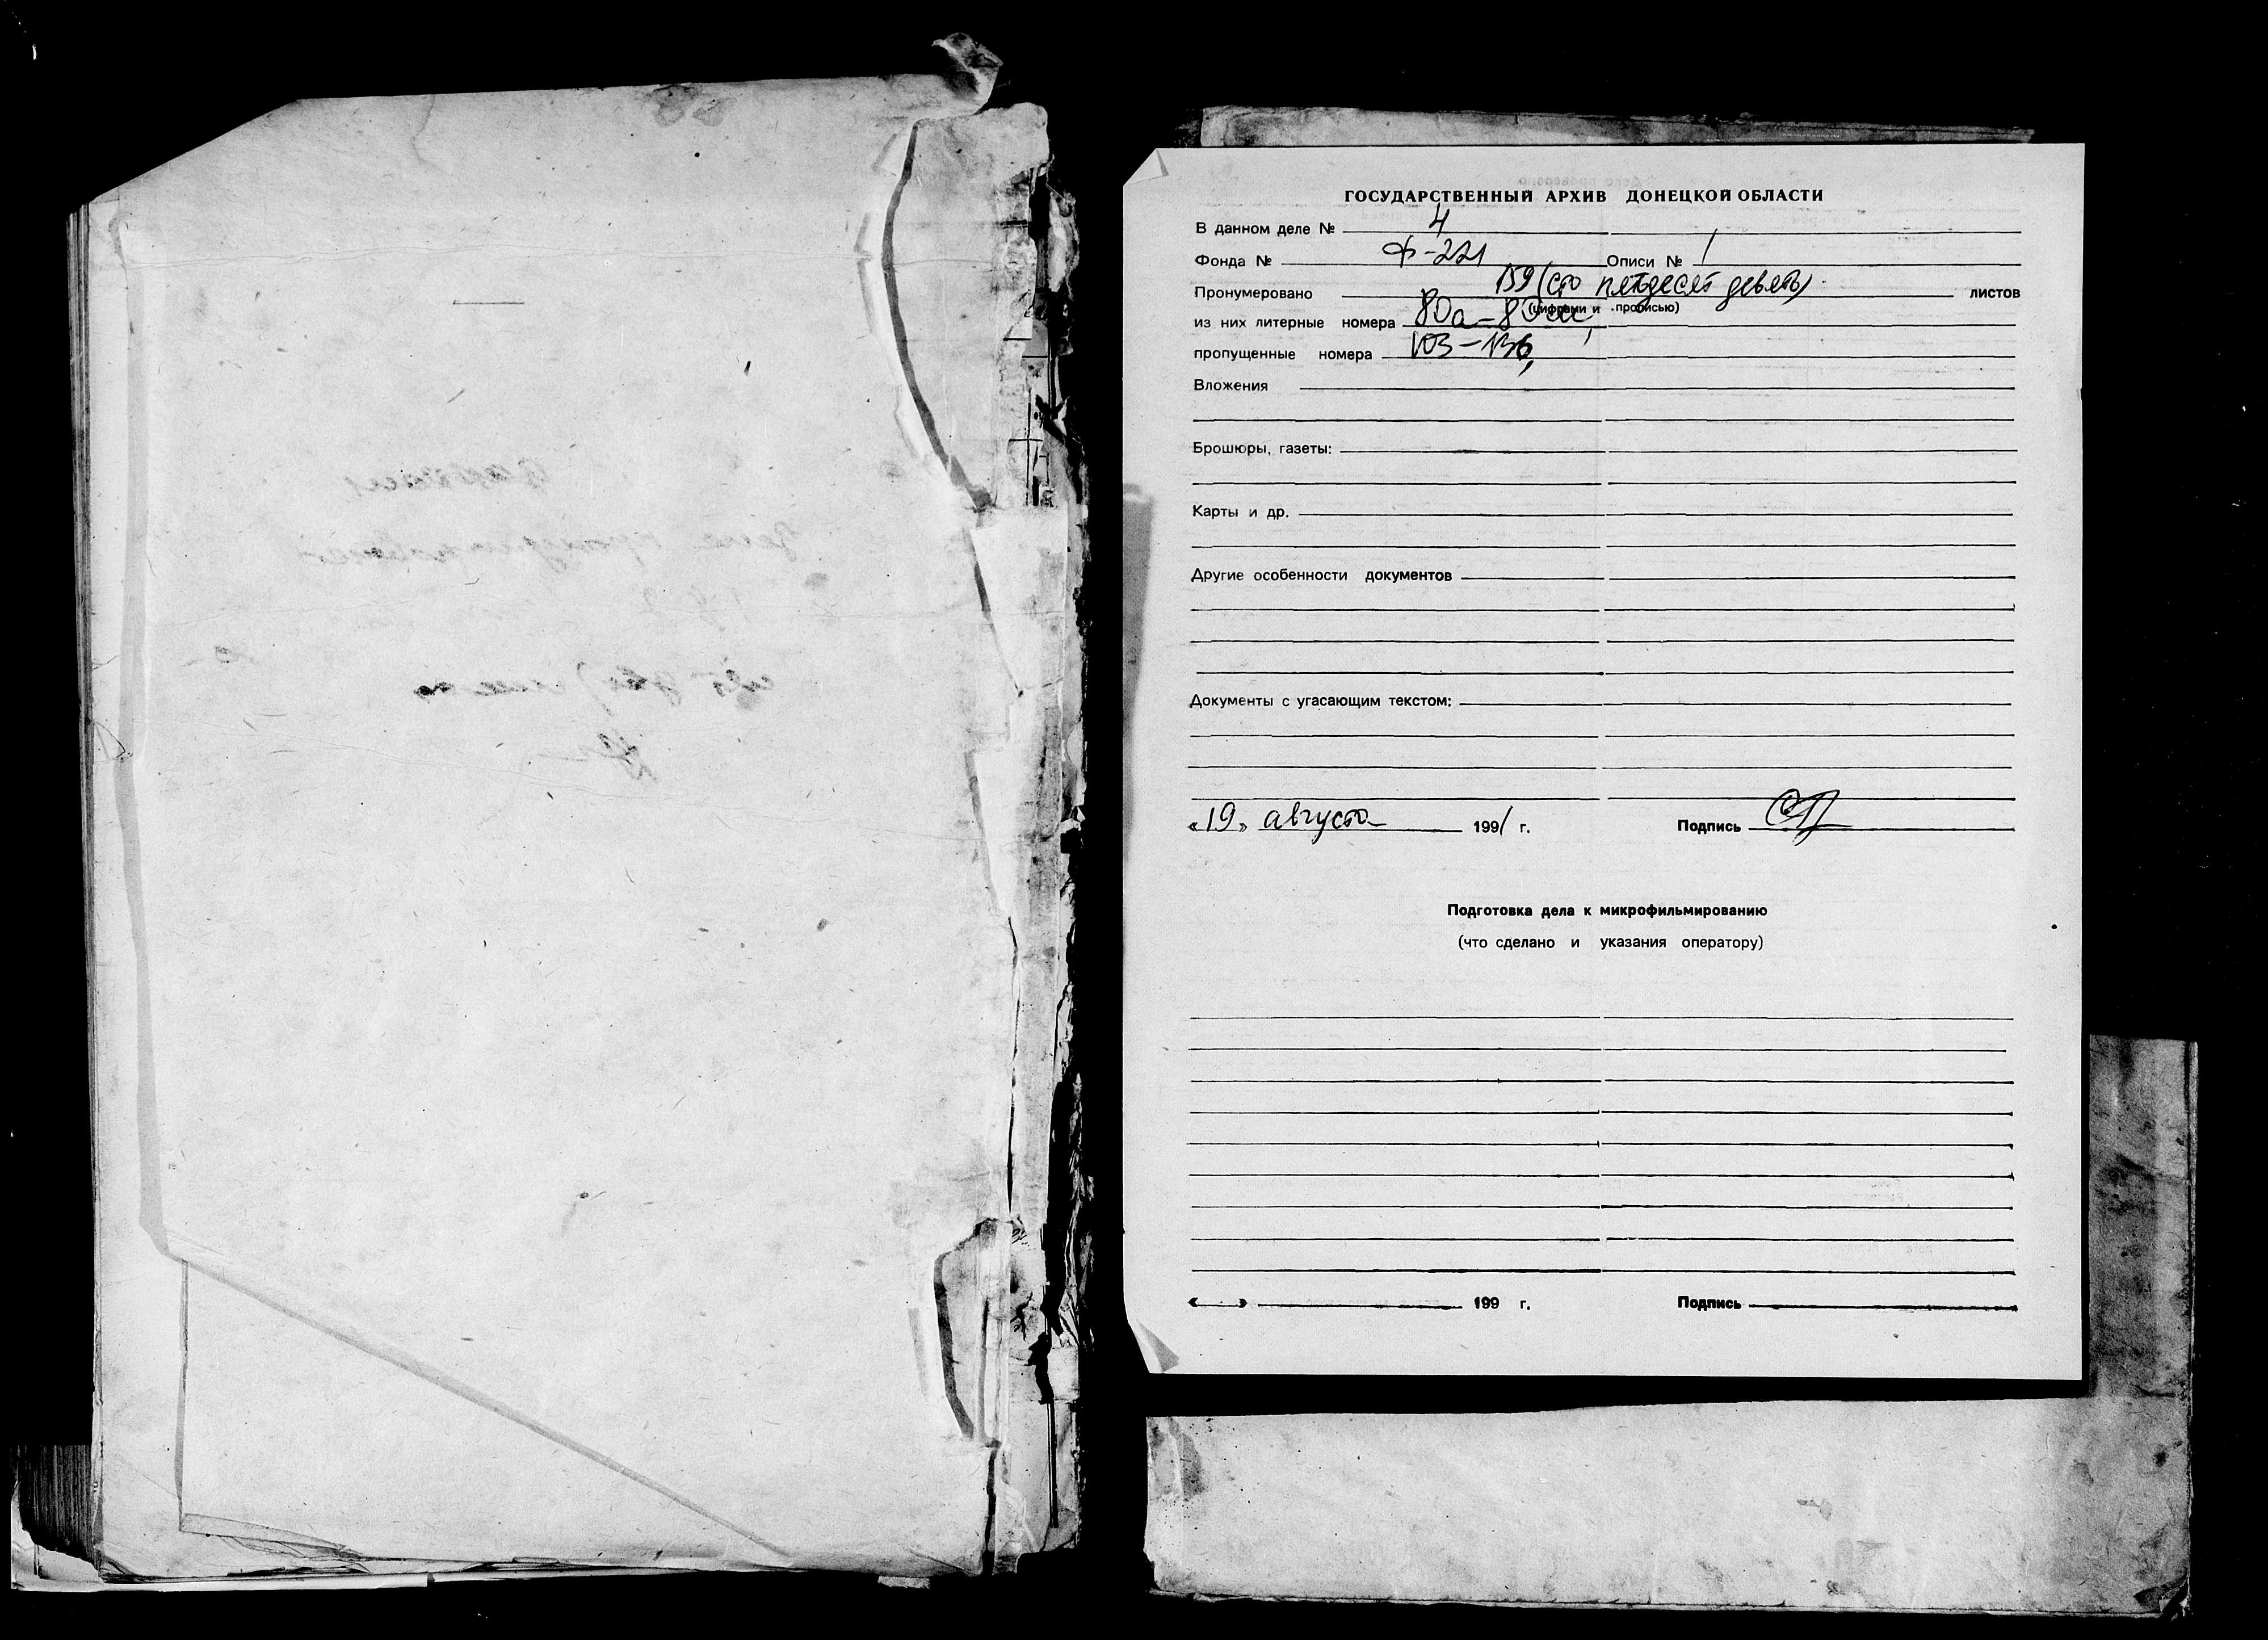 ГОСУДАРСТВЕННЫЙ АРХИВ ДОНЕЦКОЙ ОБЛАСТИ
В данном деле № 4
Фонда № Ф-221 Описи № 1
Пронумеровано 159 (сто пятдесят девять) листов
(цифрами и прописью)
из них литерные номера 80а-
пропущенные номера 103-136,
Вложения
Брошюры, газеты:
Карты и др.
Другие особенности документов
Документы с угасающим текстом:
«19» августа 1991 г. Подпись
Подготовка дела к микрофильмированию
(что сделано и указания оператору)
« » 199 г. Подпись